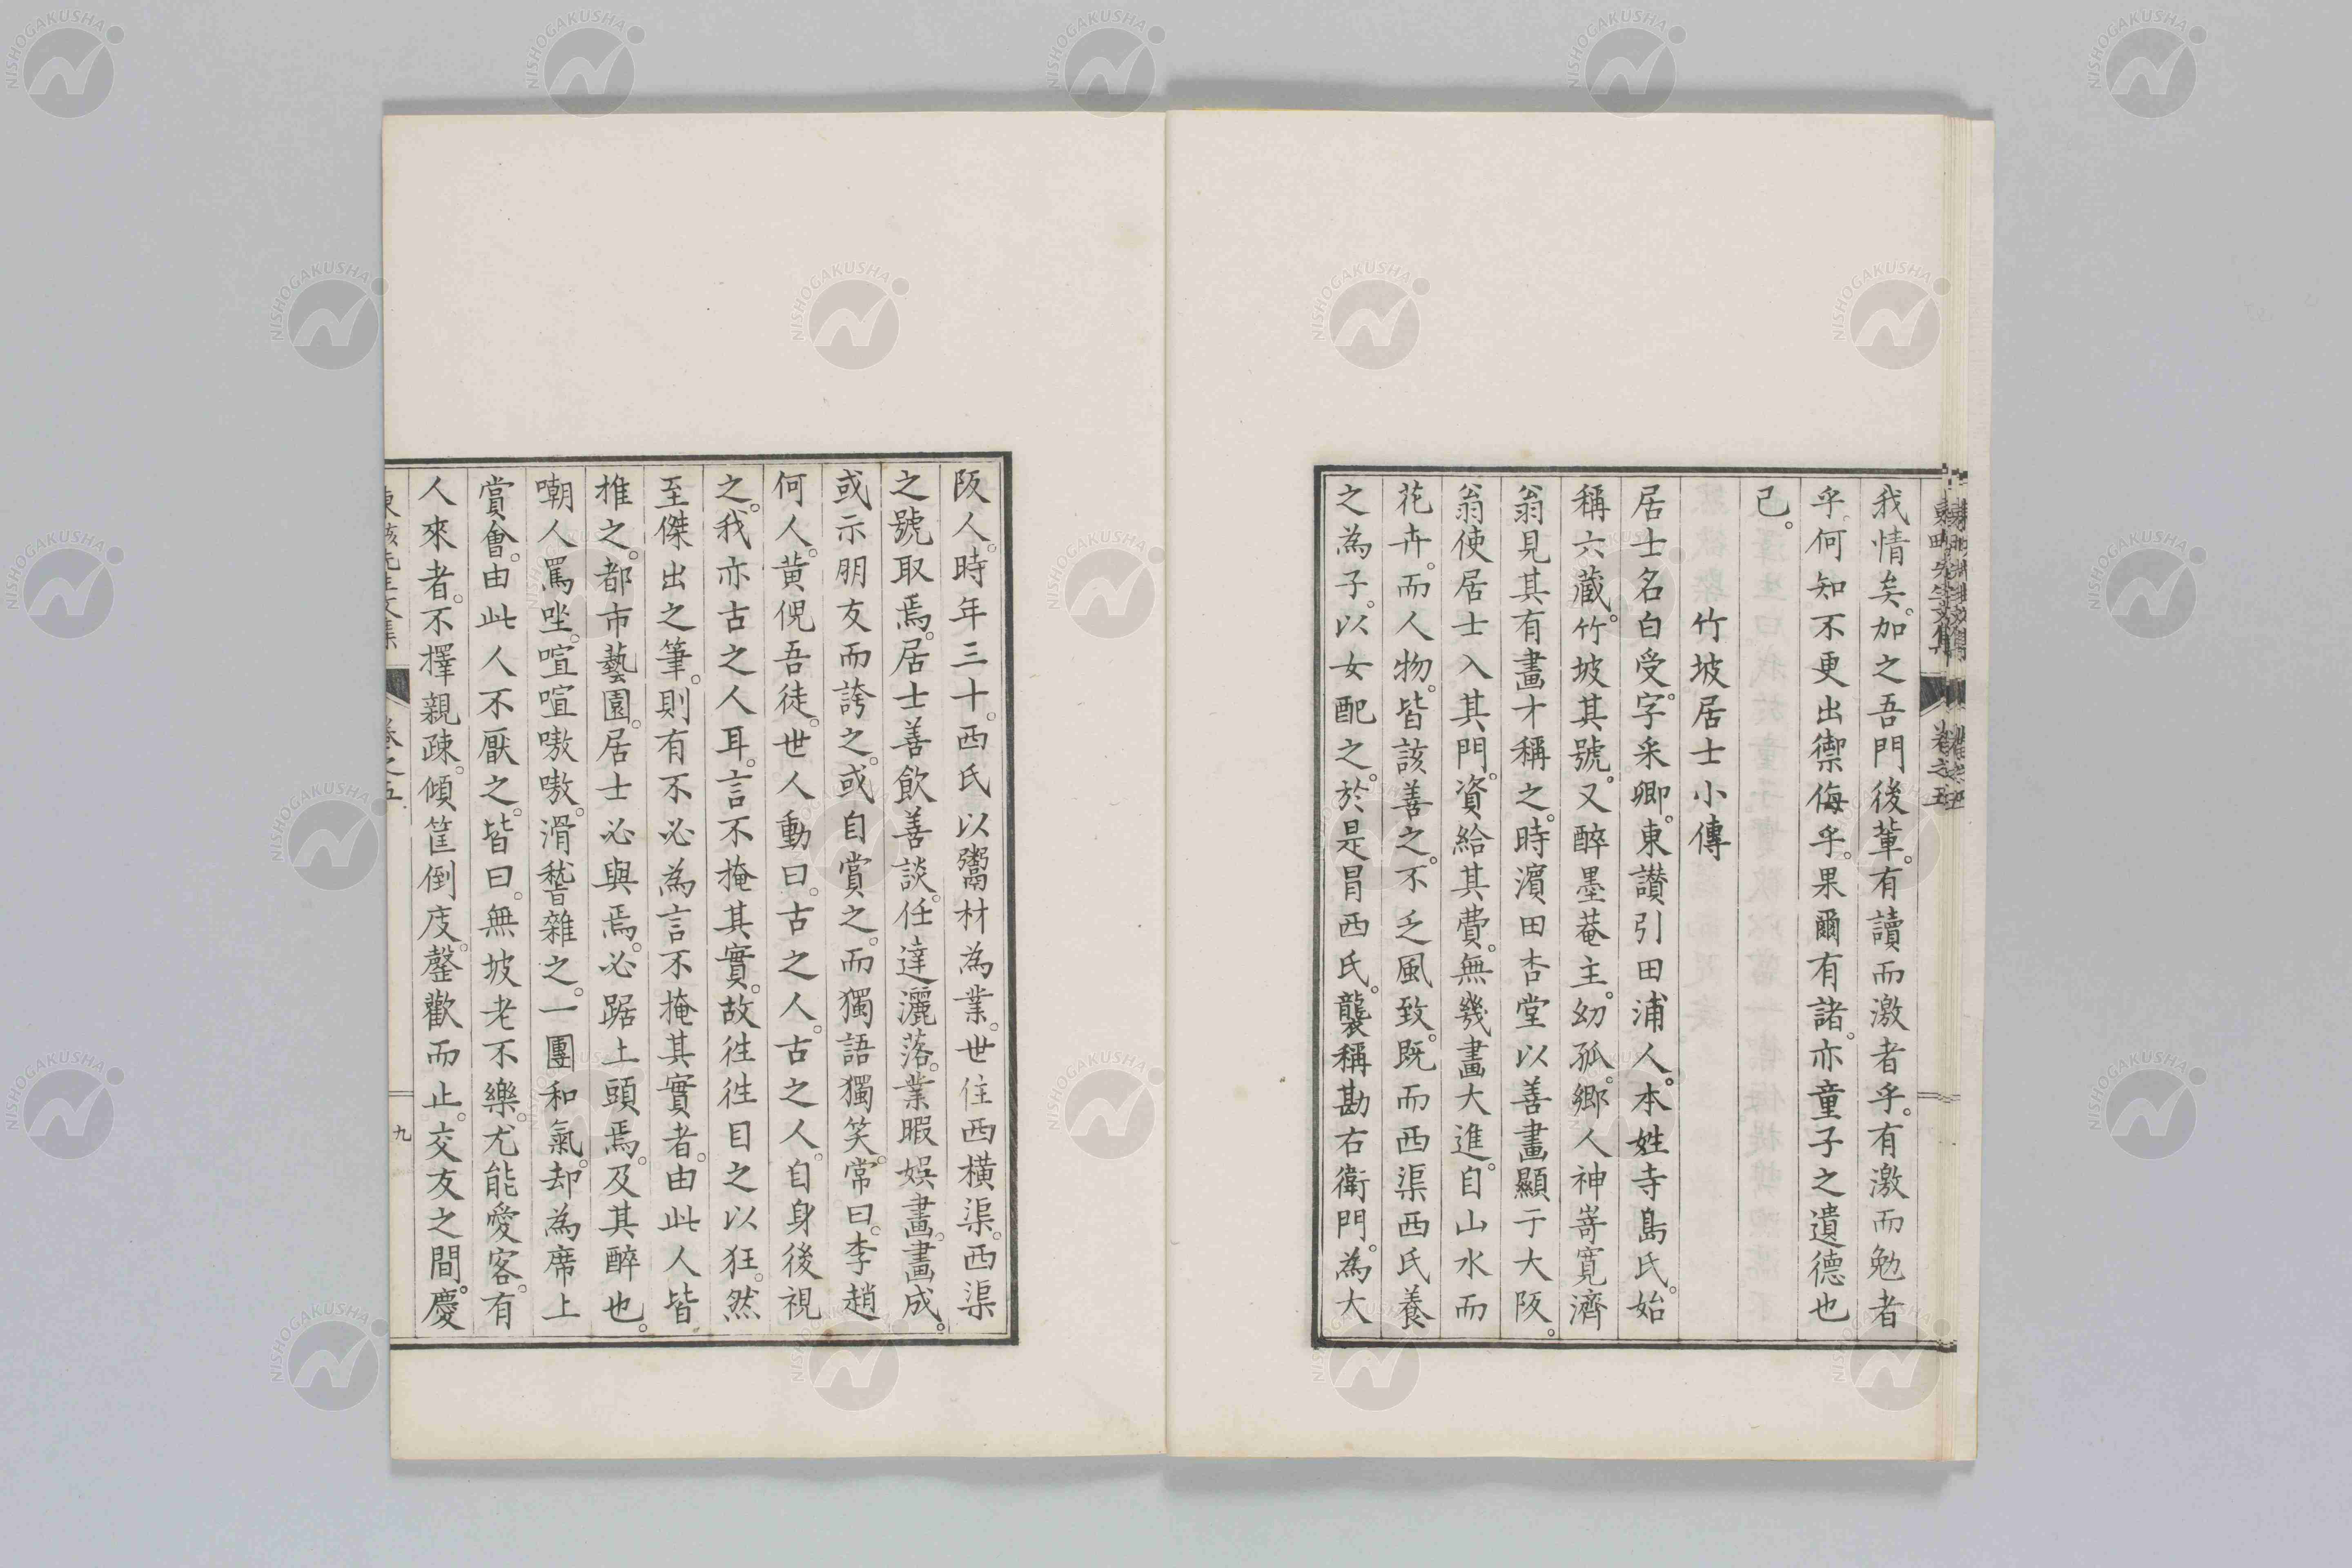 我情矣。加之吾門後輩。有讀而激者乎。有激而勉者
乎。何知不更出禦侮乎。果爾有諸。亦童子之遺德也
已。
竹坡居士小傳
居士名白受。字釆卿。東讃引田浦人。本姓寺島氏。始
稱六藏。竹坡其號。又醉墨菴主。幼孤。鄉人神嵜寬濟
翁見其有畫才稱之。時濵田杏堂以善畫顯于大阪。
翁使居士入其門。資給其費。無幾畫大進。自山水而
花卉。而人物。皆該善之。不乏風致。既而西渠西氏養
之為子。以女配之。於是冐西氏。襲稱勘右衛門。為大
阪人。時年三十。西氏以鬻材為業。世住西橫渠。西渠
之號取焉。居士善飲善談。任達灑落。業暇娯畫。畫成。
或示朋友而誇之。或自賞之。而獨語獨笑。常曰。李趙
何人。黃倪吾徒。世人動曰。古之人。古之人。自身後視
之。我亦古之人耳。言不掩其實。故徃徃目之以狂。然
至傑出之筆。則有不必為言不掩其實者。由此人皆
推之。都市藝園。居士必與焉。必踞上頭焉。及其醉也。
嘲人罵坐。喧喧嗷嗷。滑稽雜之。一團和氣。却為席上
賞會。由此人不厭之。皆曰。無坡老不樂。尤能愛客。有
人來者。不擇親疎。傾筐倒庋。罄歡而止。交友之間。慶
卷之五
九
NISHOGAKUSHA